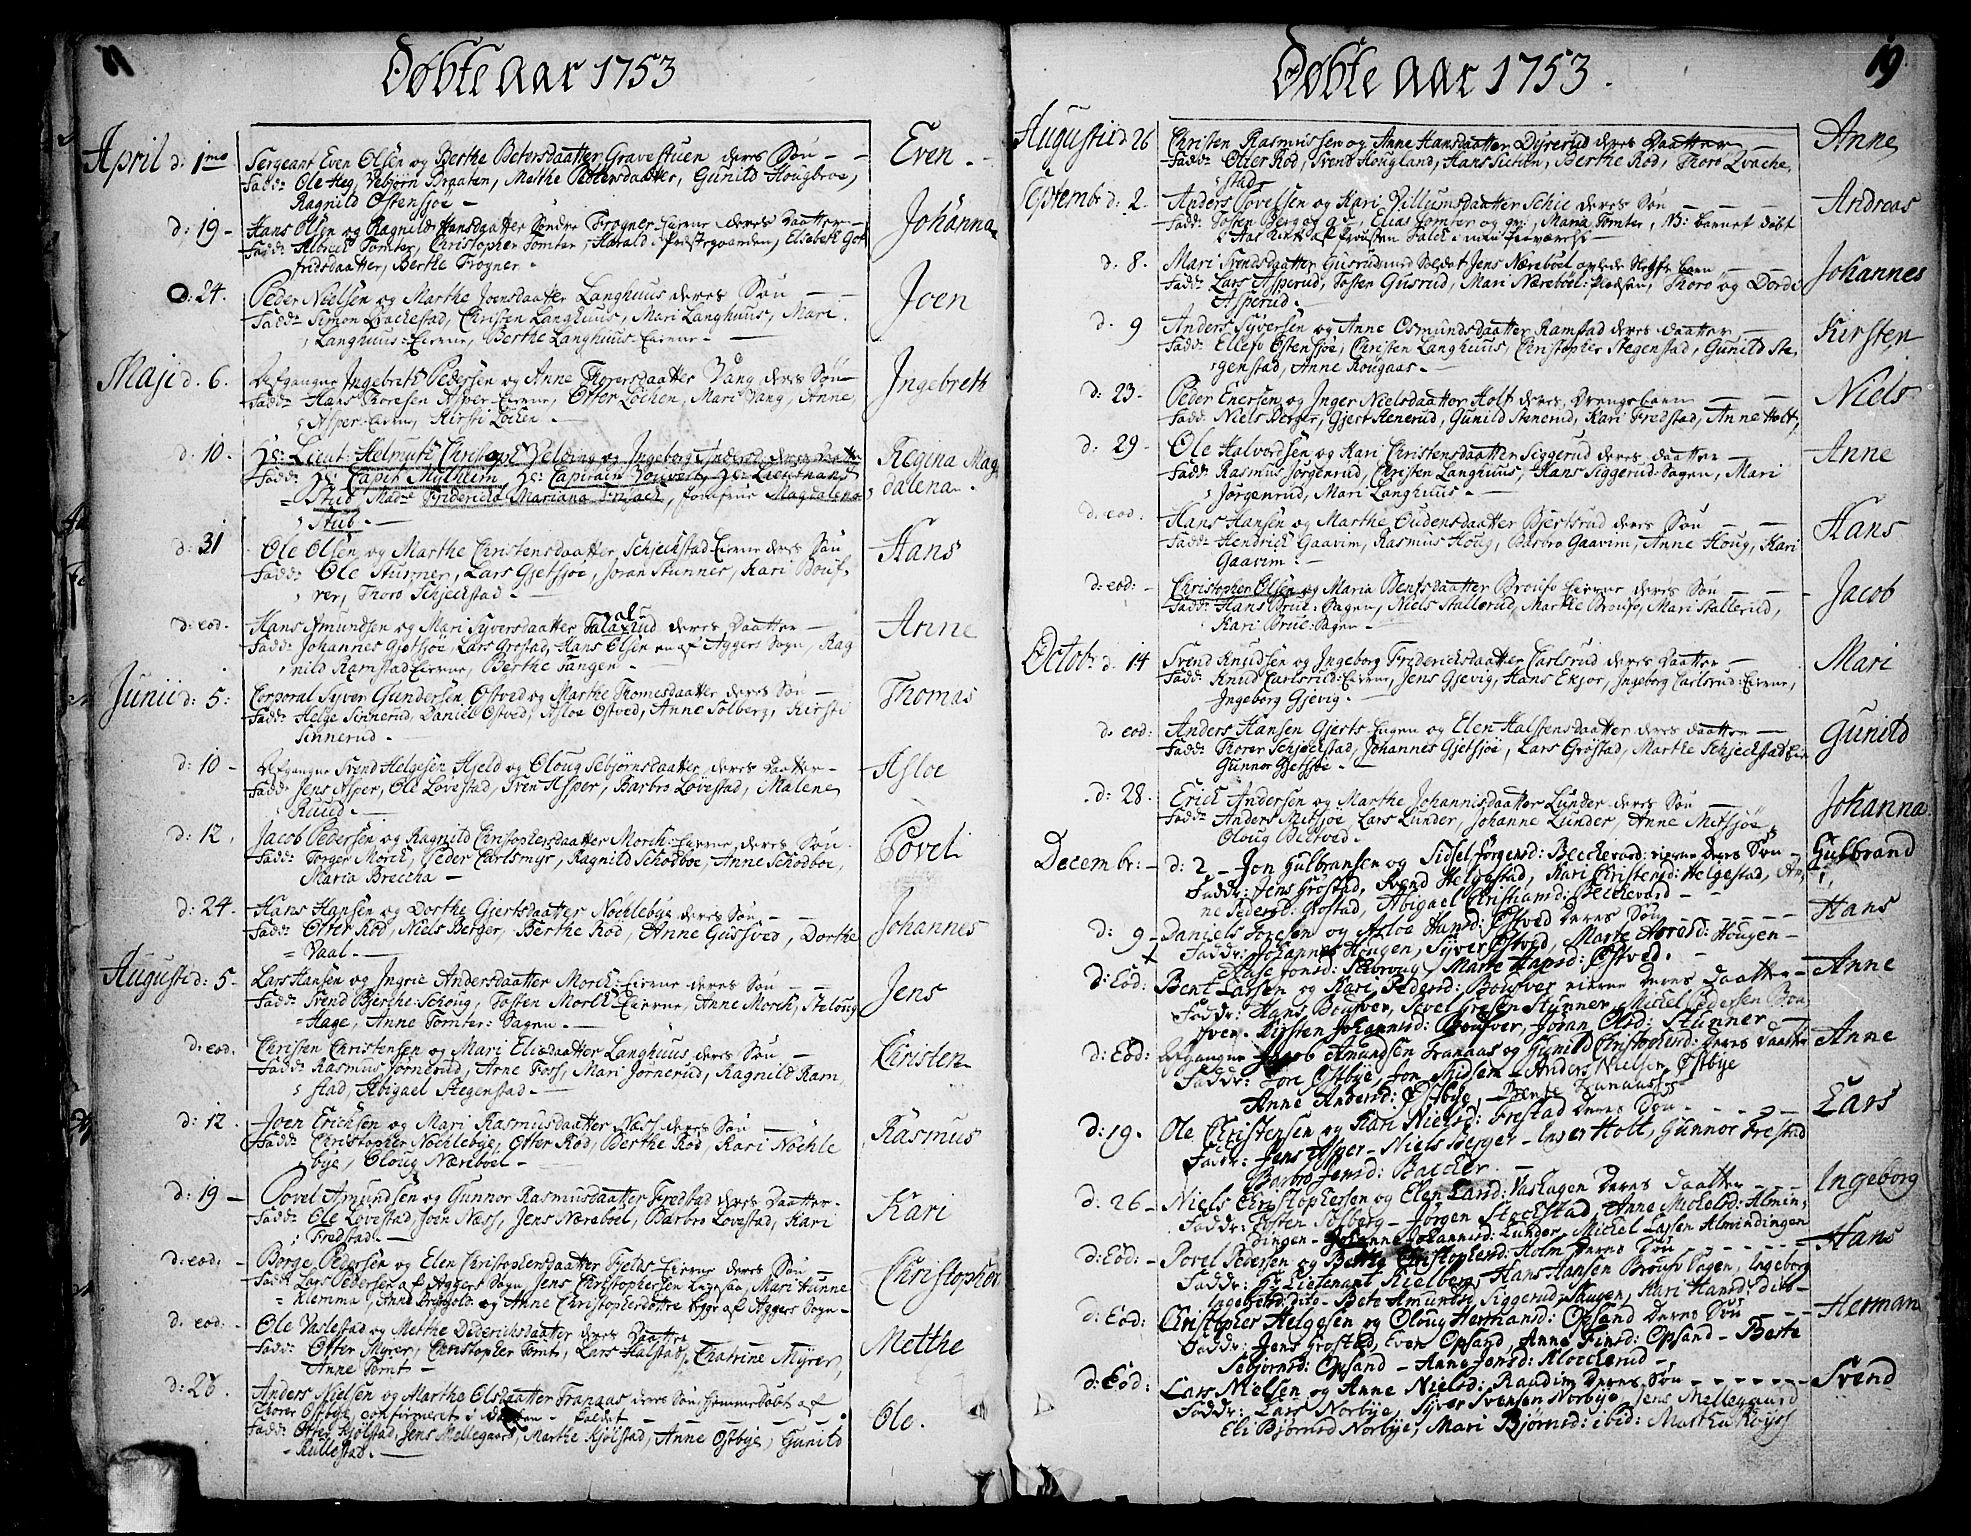 Døbte Aar 1753
April d: 1mo Sergeant Even Olsen og Berthe Petersdaatter Gravestuen deres Søn — Even
Fadd: Ole Heg, Vebjörn Braaten, Merthe Pettersdaatter, Gunild Hougbroe,
Ragnild Østensjøe
d: 19 Hans Olsen og Ragnild Hansdaatter Søndre Frogner Eierne deres Daatter Johanna
Fadd: Albreth Tomter, Christopher Tomter, Harald i Præstegaarden, Elisabeth Got
fridsdaatter, Berthe Frogner
d: 24. Peder Nielsen og Marthe Joensdaatter Langhuus deres Søn Joen
Fadd: Simon Qvachestad, Christen Langhuus, Mari Langhuus, Mari
Langhuus-Eierne, Berthe Langhuus Eierne
Maji d. 6. Afgangne Ingebreth Pedersen og Anne Thoresdaatter Vang deres Søn Ingebreth
Fadd: Hans Thoresen Asper Eierne, Otter Löchen, Mari Vang, Anne
Asper Eierne, Kirsti Löchen
d: 10. Hr: Lieut: Helmuth Christoph Zelding og Ingeborg deres Daatter Regina Mag
Fadd: Hr: Capit: Mylheim, Hr: Capitain Bouvert, Hr: Lieutnant dalena
Stub Mad: Friderica Mariana, Jomfrue Magdalena
Stub
d: 31 Ole Olsen og Marthe Christensdaatter Schjechstad Eierne deres Søn Hans
Fadd: Ole Stunner, Lars Gjetsjøe, Joran Stunner, Kari Bous-
ver, Thoro Schjechstad
d: eod. Hans Amundsen og Mari Syversdaatter deres Daatter Anne
Fadd: Johannes Gjetsjøe, Lars Grostad, Hans Olsen en af Aggers Sogn, Rag
nild Ramstad Eierne, Berthe Tangen
Junii d: 5: Corporal Syver Gundersen Østved og Marthe Thomesdaatter deres Søn Thomas
Fadd: Helge Sinnerud, Daniel Østved, Asloe Østved, Anne Solberg, Kirsti
Sinnerud
d: 10 Afgangne Svend Helgesen Hjeld og Oloug Sebjørnsdaatter deres Daatter Asloe
Fadd: Jens Asper, Ole Løvestad, Sven Asper, Barbro Løvestad, Malene
Ruud
d: 12. Jacob Pedersen og Ragnild Christophersdaatter Morch Eierne deres Søn Povel
Fadd: Torger Morch, Peder Carlsmyr, Ragnild Schodboe, Anne Schodboe,
Maria Breccha
d: 24. Hans Hansen og Dorthe Gjertsdaatter Nochlebye deres Søn Johannes
Fadd: Otter Rød, Niels Berger, Berthe Rød, Anne Gusved, Dorthe
Vaal
Augusti d: 5 Lars Hansen og Ingrie Andersdaatter Morch Eierne deres Søn Jens
Fadd: Svend Bjerche Schoug, Tosten Morch Eierne, Anne Morch, Steloug
Hage, Anne Tomter Sagen
d: eod. Christen Christensen og Mari Eliædaatter Langhuus deres Søn Christen
Fadd: Rasmus Jørnerud, Arne Foss, Mari Jørnerud, Ragnild Ram,
stad, Abigael Stegenstad
d: 12. Joen Erichsen og Mari Rasmusdaatter Næss deres Søn Rasmus
Fadd: Christopher Nochlebye, Otter Rød, Berthe Rød, Kari Nochle
bye, Oloug Næreboel
d: 19 Povel Amundsen og Gunnor Rasmusdaatter Fredstad deres Daatter Kari
Fadd: Ole Lovestad, Joen Næss, Jens Næreboel, Barbro Lovestad, Kari
Fredstad
d: eod: Børge Pedersen og Elen Christophersdaatter Fjelds Eierne deres Søn Christopher
Fadd: Lars Pedersen af Aggers Sogn, Jens Christophersen, Mari Hunne
Klemma, og Anne Christopherdotter af Aggers Sogn
d: eod. Ole Vaslestad og Merthe Dederichsdaatter deres Daatter Metthe
Fadd: Otter Myrer, Christopher Tomt, Lars Halstad, Chatrine Myrer,
Anne Tomt
d: 26. Anders Nielsen og Marthe Olsdaatter Franaas deres Søn hiemmedøbt af Ole.
Thorer Østbye, confirmeret i
Fadd: Otter Kjølstad, Jens Mellegaard, Marthe Kjølstad, Anne Østbye, Gunild
Rullestad
Døbte Aar 1753. 19
Augustii d 26 Christen Rasmussen og Anne Hansdaatter Dyrerud deres Daatter Anne
Fadd: Otter Rød, Svend Hougland, Hans, Berthe Rød, Thoro Qvache
stad
Septembr d: 2. Anders Povelsen og Kari Villumsdaatter Schie deres Søn Andreas
Fadd: Tosten Berg af Aas, Elias Tomter og, Maria Tomter, NB: barnet døbt
i Aas Kirke af Provsten Falck i min fraværelse
d: 8. Mari Svendsdaatter Gusrud med Soldat Jens Næreboel avlede barn Johannes
Fadd: Lars Asperud, Tosten Gusrud, Mari Næreboel, Thoro og Dorde
Asperud
d. 9 Anders Syversen og Anne Osmundsdaatter Ramstad deres daatter Kirsten
Fadd: Ellef Østensjøe, Christen Langhuus, Christopher Stegenstad, Gunild Ste
genstad, Anne Kougaas
d: 23. Peder Enersen og Inger Nielsdaatter Holt deres Drengebarn Niels
Fadd: Niels Berger, Gjert Stenerud, Gunild Stenerud, Kari Fredstad, Anne Holt
d: 29. Ole Halvordsen og Kari Christensdaatter Siggerud deres daatter Anne
Fadd: Rasmus Jørgenrud, Christen Langhuus, Hans Siggerud-Sagen, Mari
Jørgenrud, Mari Langhuus
d. eod. Hans Hansen og Marthe Oudensdaatter Bjertsrud deres Søn Hans
Fadd: Hendrich Gaavim, Rasmus Houg, Barbro Gaavim, Anne Houg, Kari
Gaavim
d: eod: Christopher Olsen og Maria Bentsdaatter Brousø Eierne deres Søn Jacob
Fadd: Hans Brue-Sagen, Niels Stallerud, Marthe Brousø, Mari Stallerud,
Kari Brue-Sagen
Octobr d. 14 Svend Knudsen og Ingeborg Friderichsdaatter Carlsrud deres Daatter Mari
Fadd: Knud Carlsrud-Eierne, Jens Gjevig, Hans Ekjor, Ingeborg Carlsrud-Eierne,
Ingeborg Gjevig
d. eod: Anders Hansen Gjerts Eigen og Elen Halstensdaatter deres daatter Gunild
Fadd: Thorer Schjechstad, Johannes Gjetsjøe, Lars Grostad, Marthe Schjechstad Eier
Gunnor Gjetsjøe
d: 28. Erich Andersen og Marthe Johannisdaatter Lunder deres Søn Johanna
Fadd: Anders Mitsjøe, Lars Lunder, Johanne Lunder, Anne Mitsjøe,
Oloug Bestved
Decembr: d: 2 Jon Gulbransen og Sidsel Jørgensd: Bechevard: eierne deres Søn Gulbrand
Faddr: Jens Grostad, Svend Helgestad, Kari Christensd: Helgestad, An
ne Pedersd: Grostad, Abigael Christiansd: Bechevard
d: 9 Daniels Toresen og Asloe Hansd: Østved deres Søn Hans
Faddr: Johannes Hougen, Syver Østved, Marte Thoresd: Hougen
Aase Jonsd: Sebroug, Marte Hansd: Østved.
d: Eod: Bent Larsen og Kari Pedersd: Bousver eierne deres Daatter Anne
Faddr: Hans Bousver, Povel Stunner, Michel Pedersen Bou
sver, Kirsten Johannisd: Bousver, Joran Olsd: Stunner
d: Eod: Afgangne Jacob Amundsen Franaas og Gunild Christophersd: deres Daatter Anne
Faddr: Tore Østbye, Jon Midsem, Anders Nielsen Østbye
Anne Andersd: Østbye, Franaas
d: 19. Ole Christensen og Kari Nielsd: Frestad deres Søn Lars
Faddr: Jens Asper, Niels Berger, Inger Holt, Gunnor Frestad
Barbro Jensd: Baccher
d: 26 Niels Christophersen og Elen Larsd: Vashagen deres daatter Ingeborg
Faddr: Tosten Solberg, Jørgen Stockstad, Anne Michelsd: Almin,
dingen, Johanne Johannisd: Lunder, Michel Larsen Almindingen
d: Eod: Povel Pedersen og Berte Christophersd: Holm deres Søn Hans
Faddr: Hr Lieutenant Kielberg, Hans Hansen Brousø Eagen, Ingeborg
Ingebretsd: dito, Berte Amundsd Siggerud Saugen, Kari Hansd: dito
d: Eod: Christopher Helgesen og Oloug Hermansd: Opsand deres Søn Herman
Faddr: Jens Grostad, Even Opsand, Anne Finsd: Opsand, Berte
Sebjørnsd: Opsand, Anne Jensd: Klocherud
d: Eod: Lars Nielsen og Anne Nielsd: Raudim deres Søn Svend
Faddr: Lars Norbye, Syver Svensen Norbye, Jens Mellegaard
Eli Bjørnsd Norbye, Mari Bjørnsd: ibid: Marthe Røyss